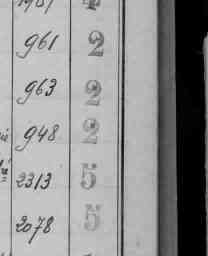 961 2
963 2
948 2
2313 5
2078 5